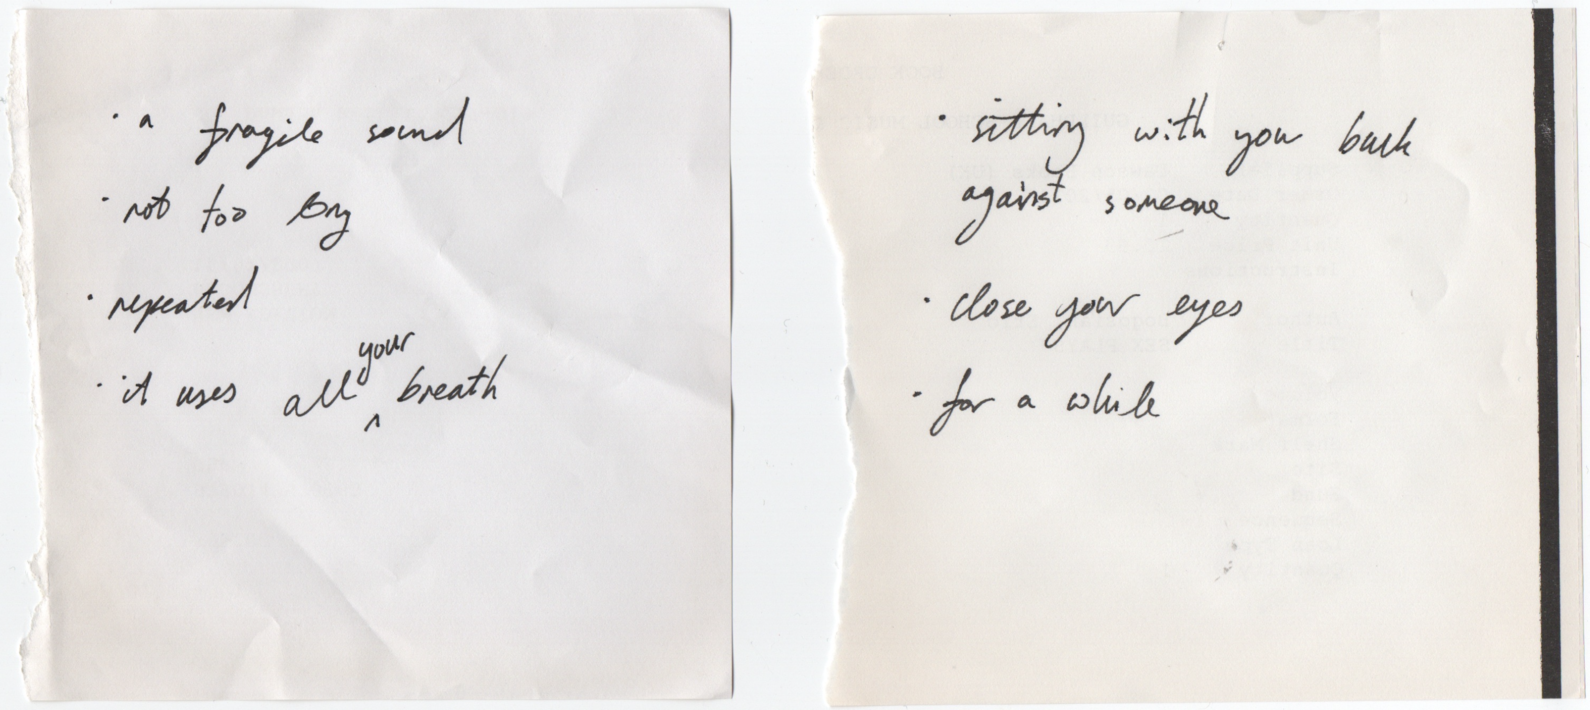 · a fragile sound
· not too long
· repeated
· it uses all your breath
· sitting with your back
against someone
· close your eyes
· for a while